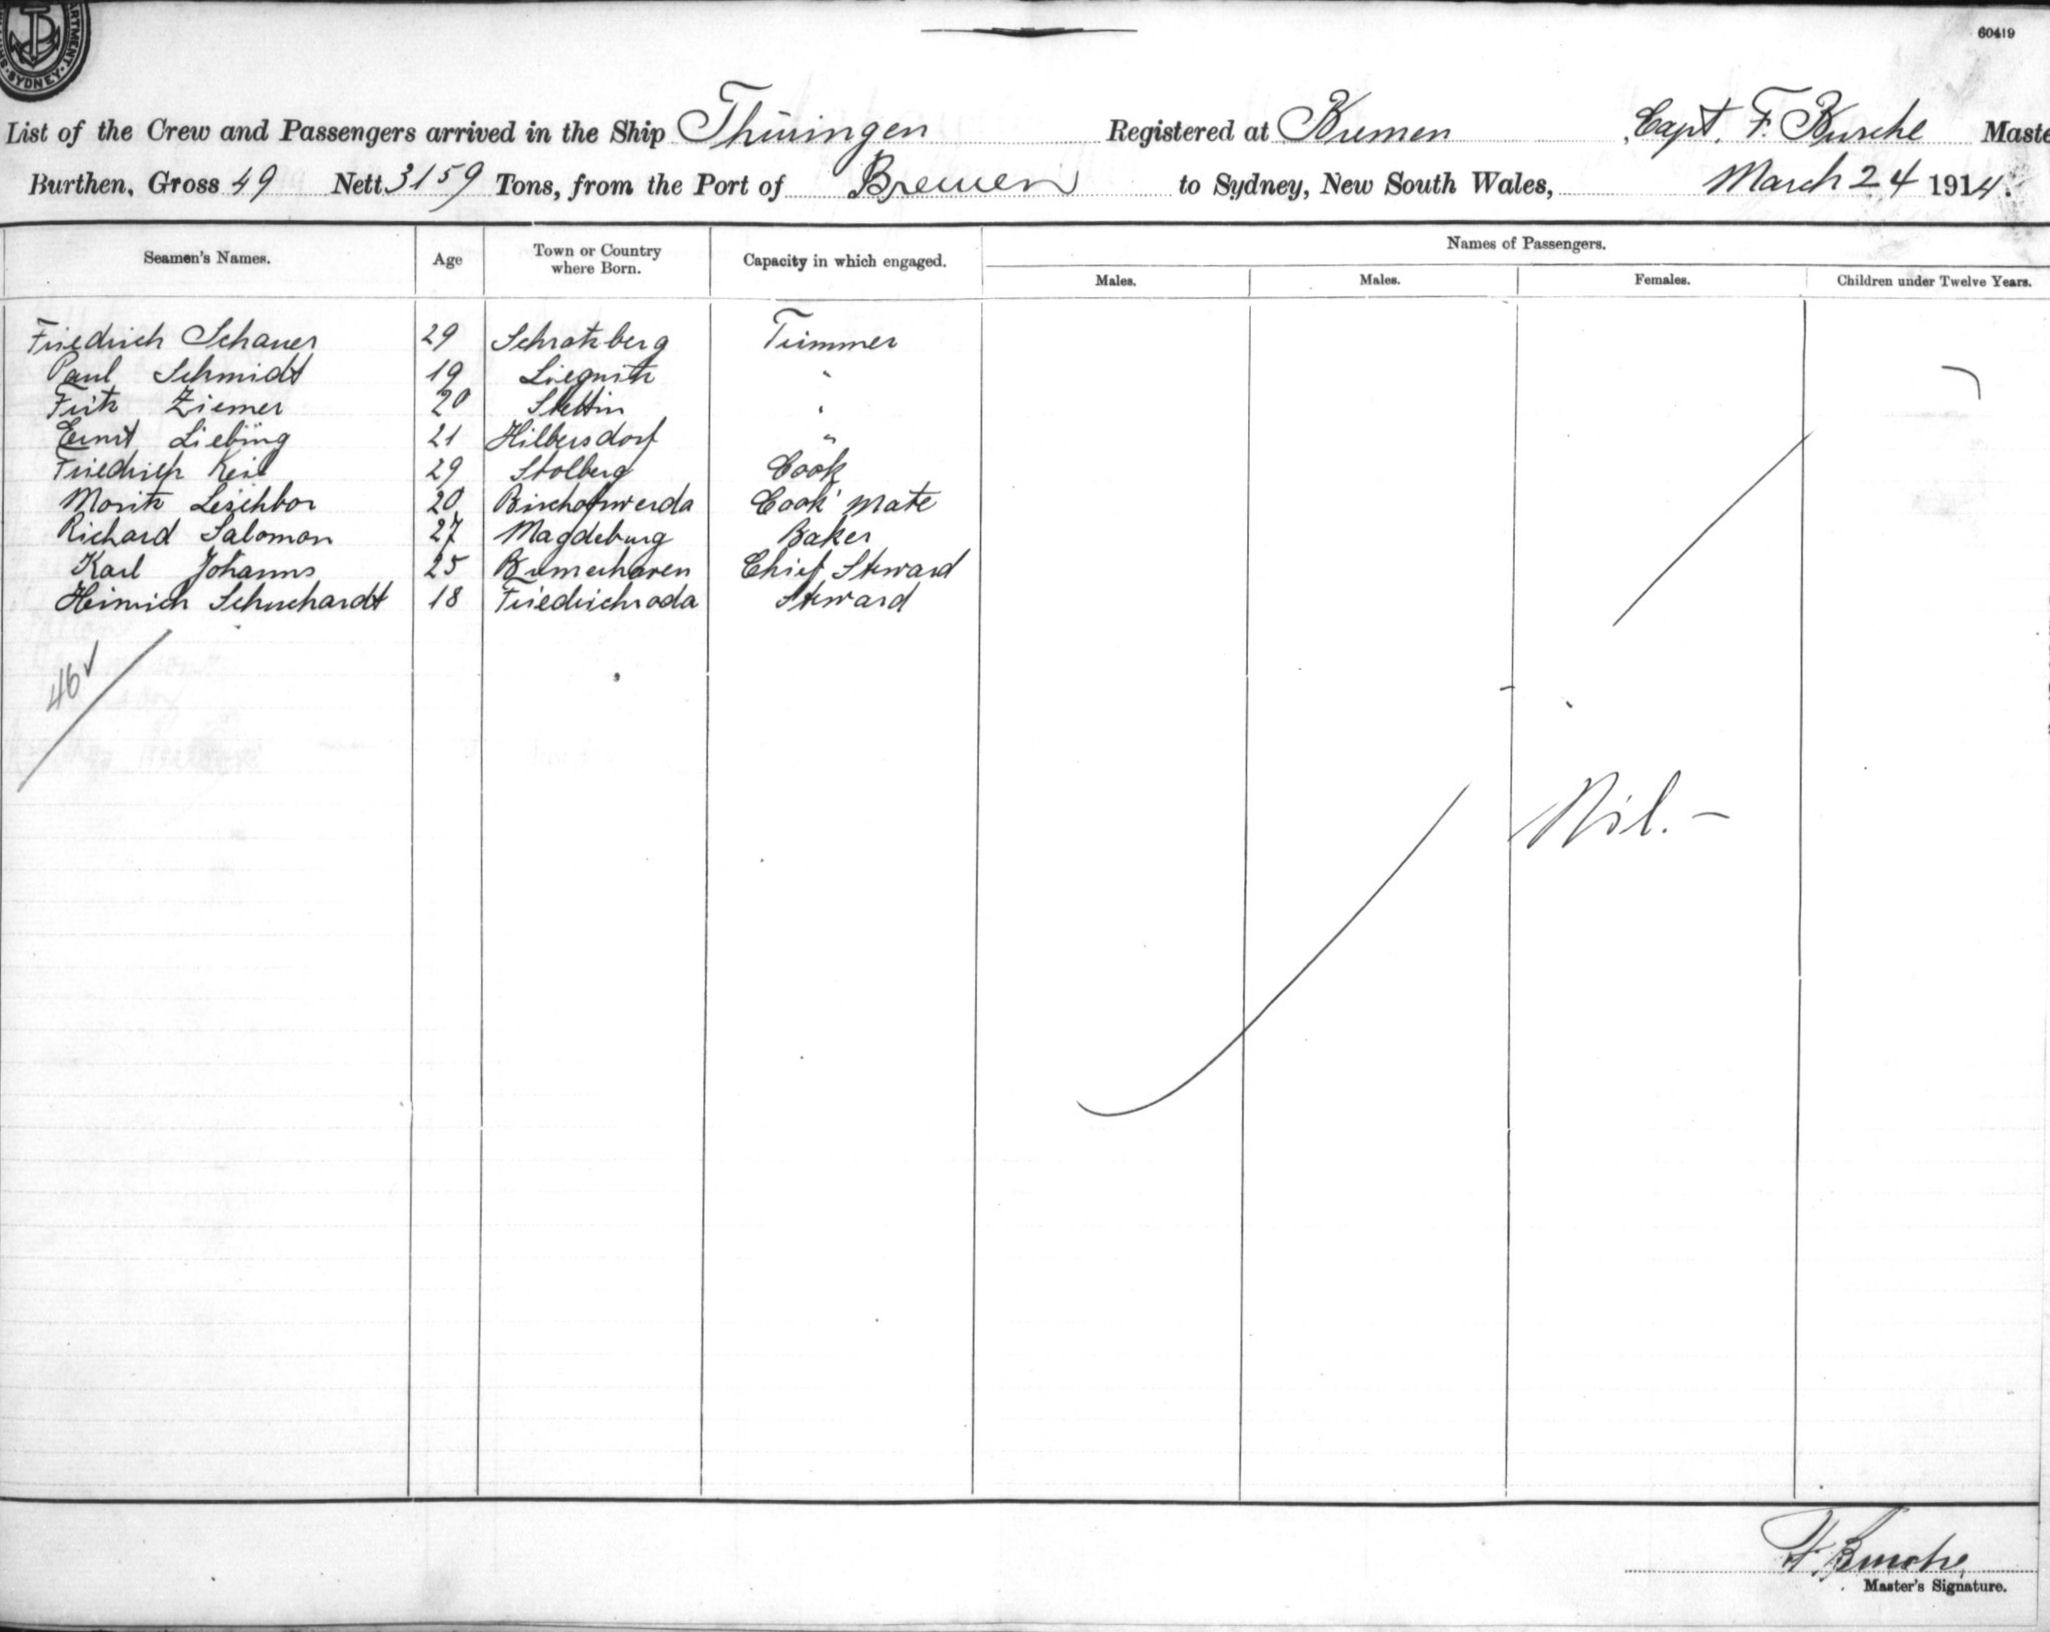 60419
SYDNEY
List of the Crew and Passengers arrived in the Ship Thüringen Registered at Bremen, Capt. F. Busche Maste
Burthen, Gross 49 Nett 3159 Tons, from the Port of Bremen to Sydney, New South Wales, March 24 1914.
Seamen's Names. Age Town or Country where Born. Capacity in which engaged. Names of Passengers.
Males. Males. Females. Children under Twelve Years.
Friedrich Schauer 29 Schratzberg Trimmer
Paul Schmidt 19 Liegnitz "
Fritz Ziemer 20 Stettin "
Ernst Liebing 21 Hilbersdorf "
Friedrich Keil 29 Stolberg Cook
Moritz 20 Bischofswerda Cook' Mate
Richard Salomon 27 Magdeburg Baker
Karl Johanns 25 Bremerhaven Chief Steward
Heinrich Schuchardt 18 Friedrichroda Steward
46 ✓
Nil. —
F. Busche
Master's Signature.